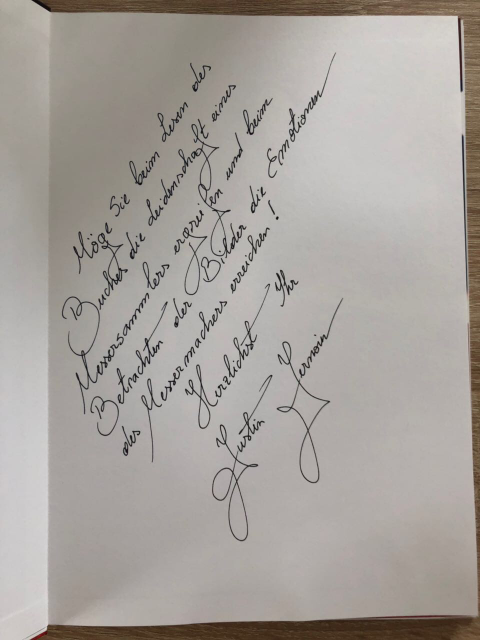 Möge Sie beim Lesen des
Buches die Leidenschaft eines
Messersammlers ergreifen und beim
Betrachten der Bilder die Emotionen
des Messermachers erreichen!
Herzlichst Ihr
Justin